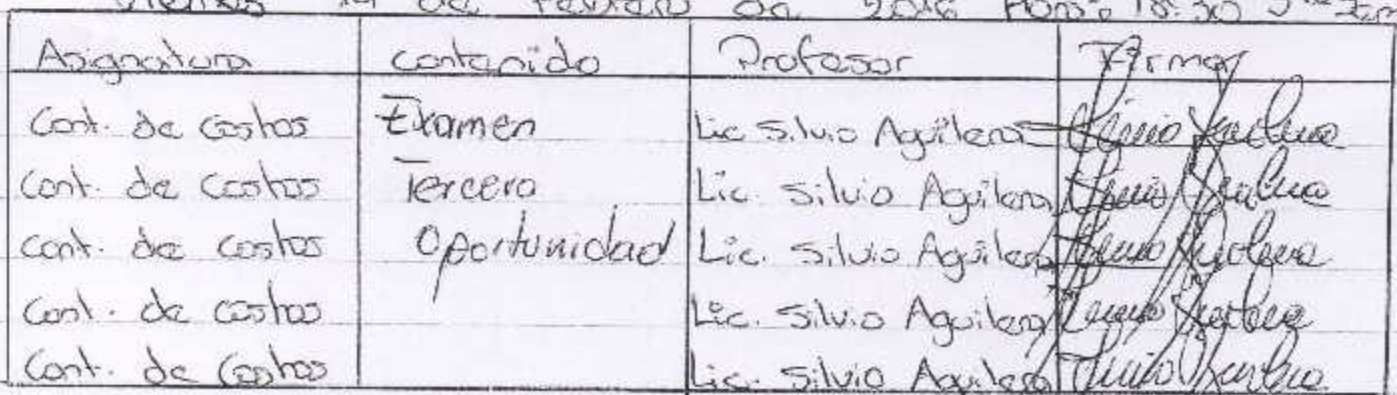 de Febrero de 2016 Hora: 18:30
Asignatura contenido Profesor Firma
Cont. de Costos Examen Lic Silvio Aguilera
Cont. de Costos Tercera Lic. Silvio Aguilera
Cont. de Costos Oportunidad Lic. Silvio Aguilera
Cont. de Costos Lic. Silvio Aguilera
Cont. de Costos Lic. Silvio Aguilera